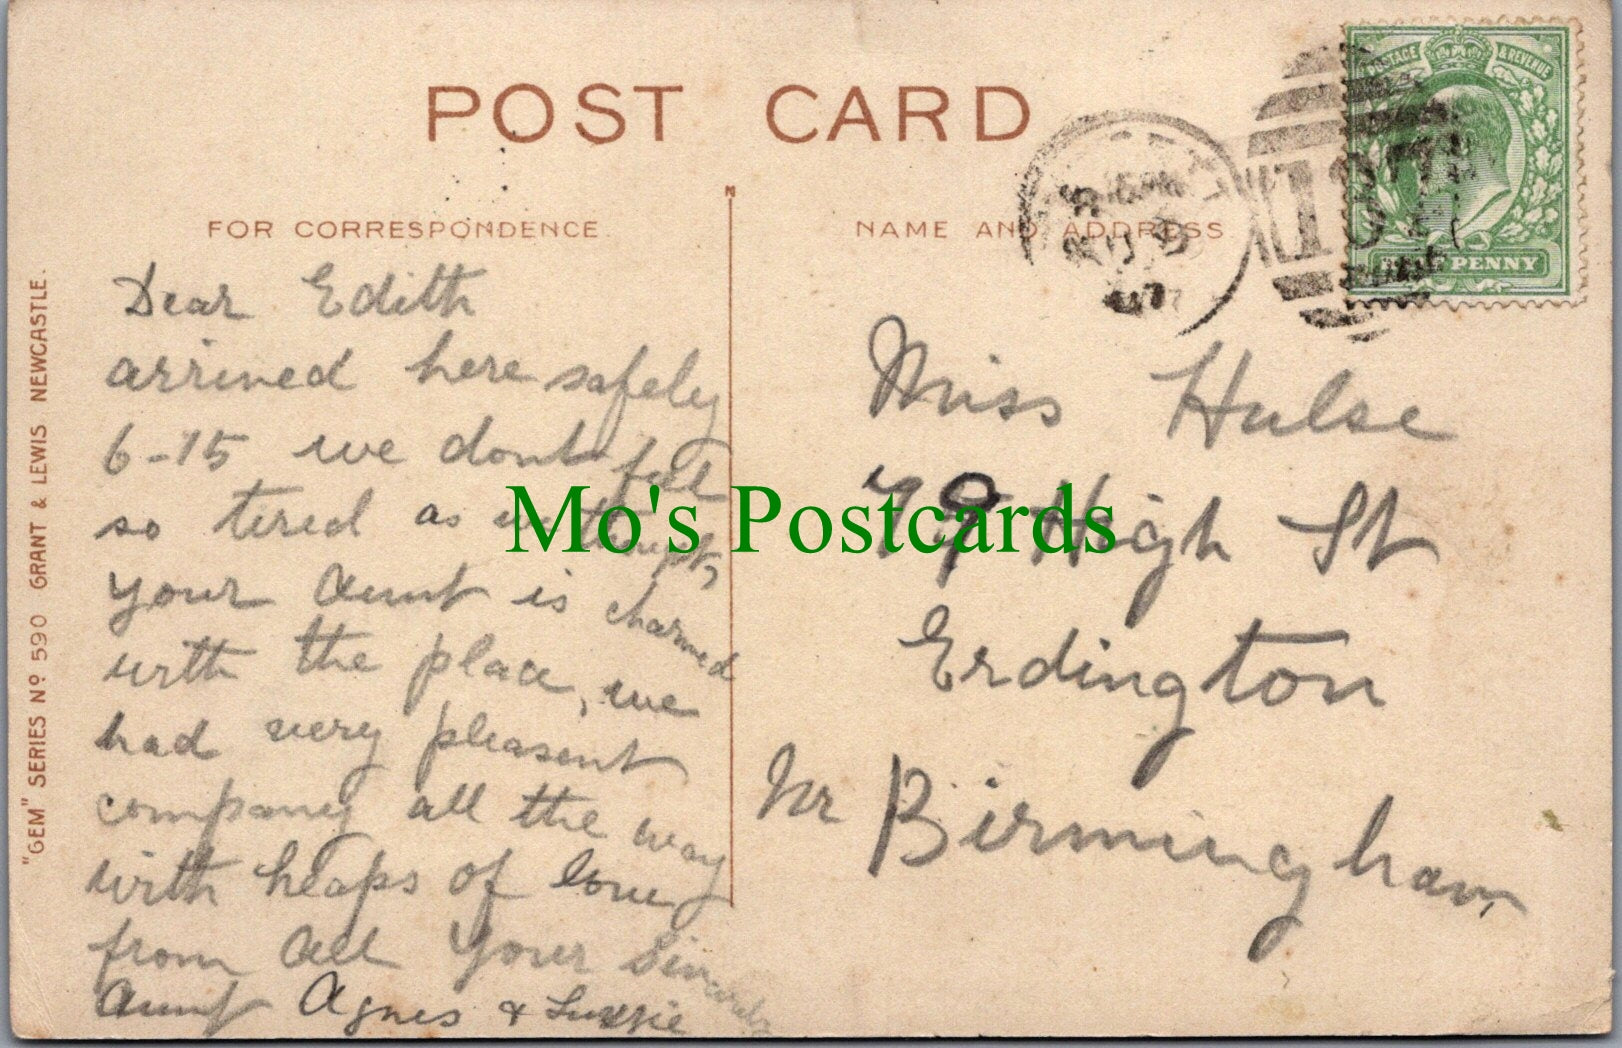 POST CARD
FOR CORRESPONDENCE
NAME AND ADDRESS
"GEM" SERIES Nº 590 GRANT & LEWIS. NEWCASTLE.
POSTAGE & REVENUE
PENNY
187
Dear Edith
arrived here safely
6-15 we dont feel
so tired as we
your Aunt is charmed
with the place, we
had very pleasent
company all the way
with heaps of love
from all Your Sincerely
Aunt Agnes &
Miss Hulse
79 High St
Erdington
Nr Birmingham
Mo's Postcards